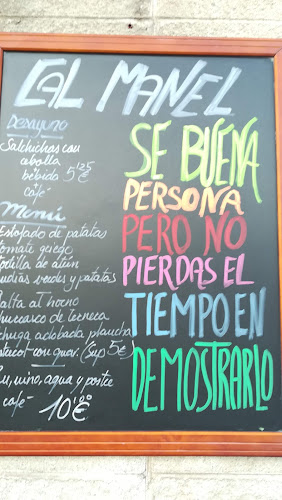 CAL MANEL
Desayuno
Salchichas con
cebolla
bebida 5'25 €
café
Menú
Estofado de patatas
tomate
tortilla de atún
judías verdes y patatas
al horno
churrasco de ternera
lechuga adobada plancha
con guar. (Sup 5€)
Pan, vino, agua y postre
café 10'00 €
SE BUENA
PERSONA
PERO NO
PIERDAS EL
TIEMPO EN
DEMOSTRARLO